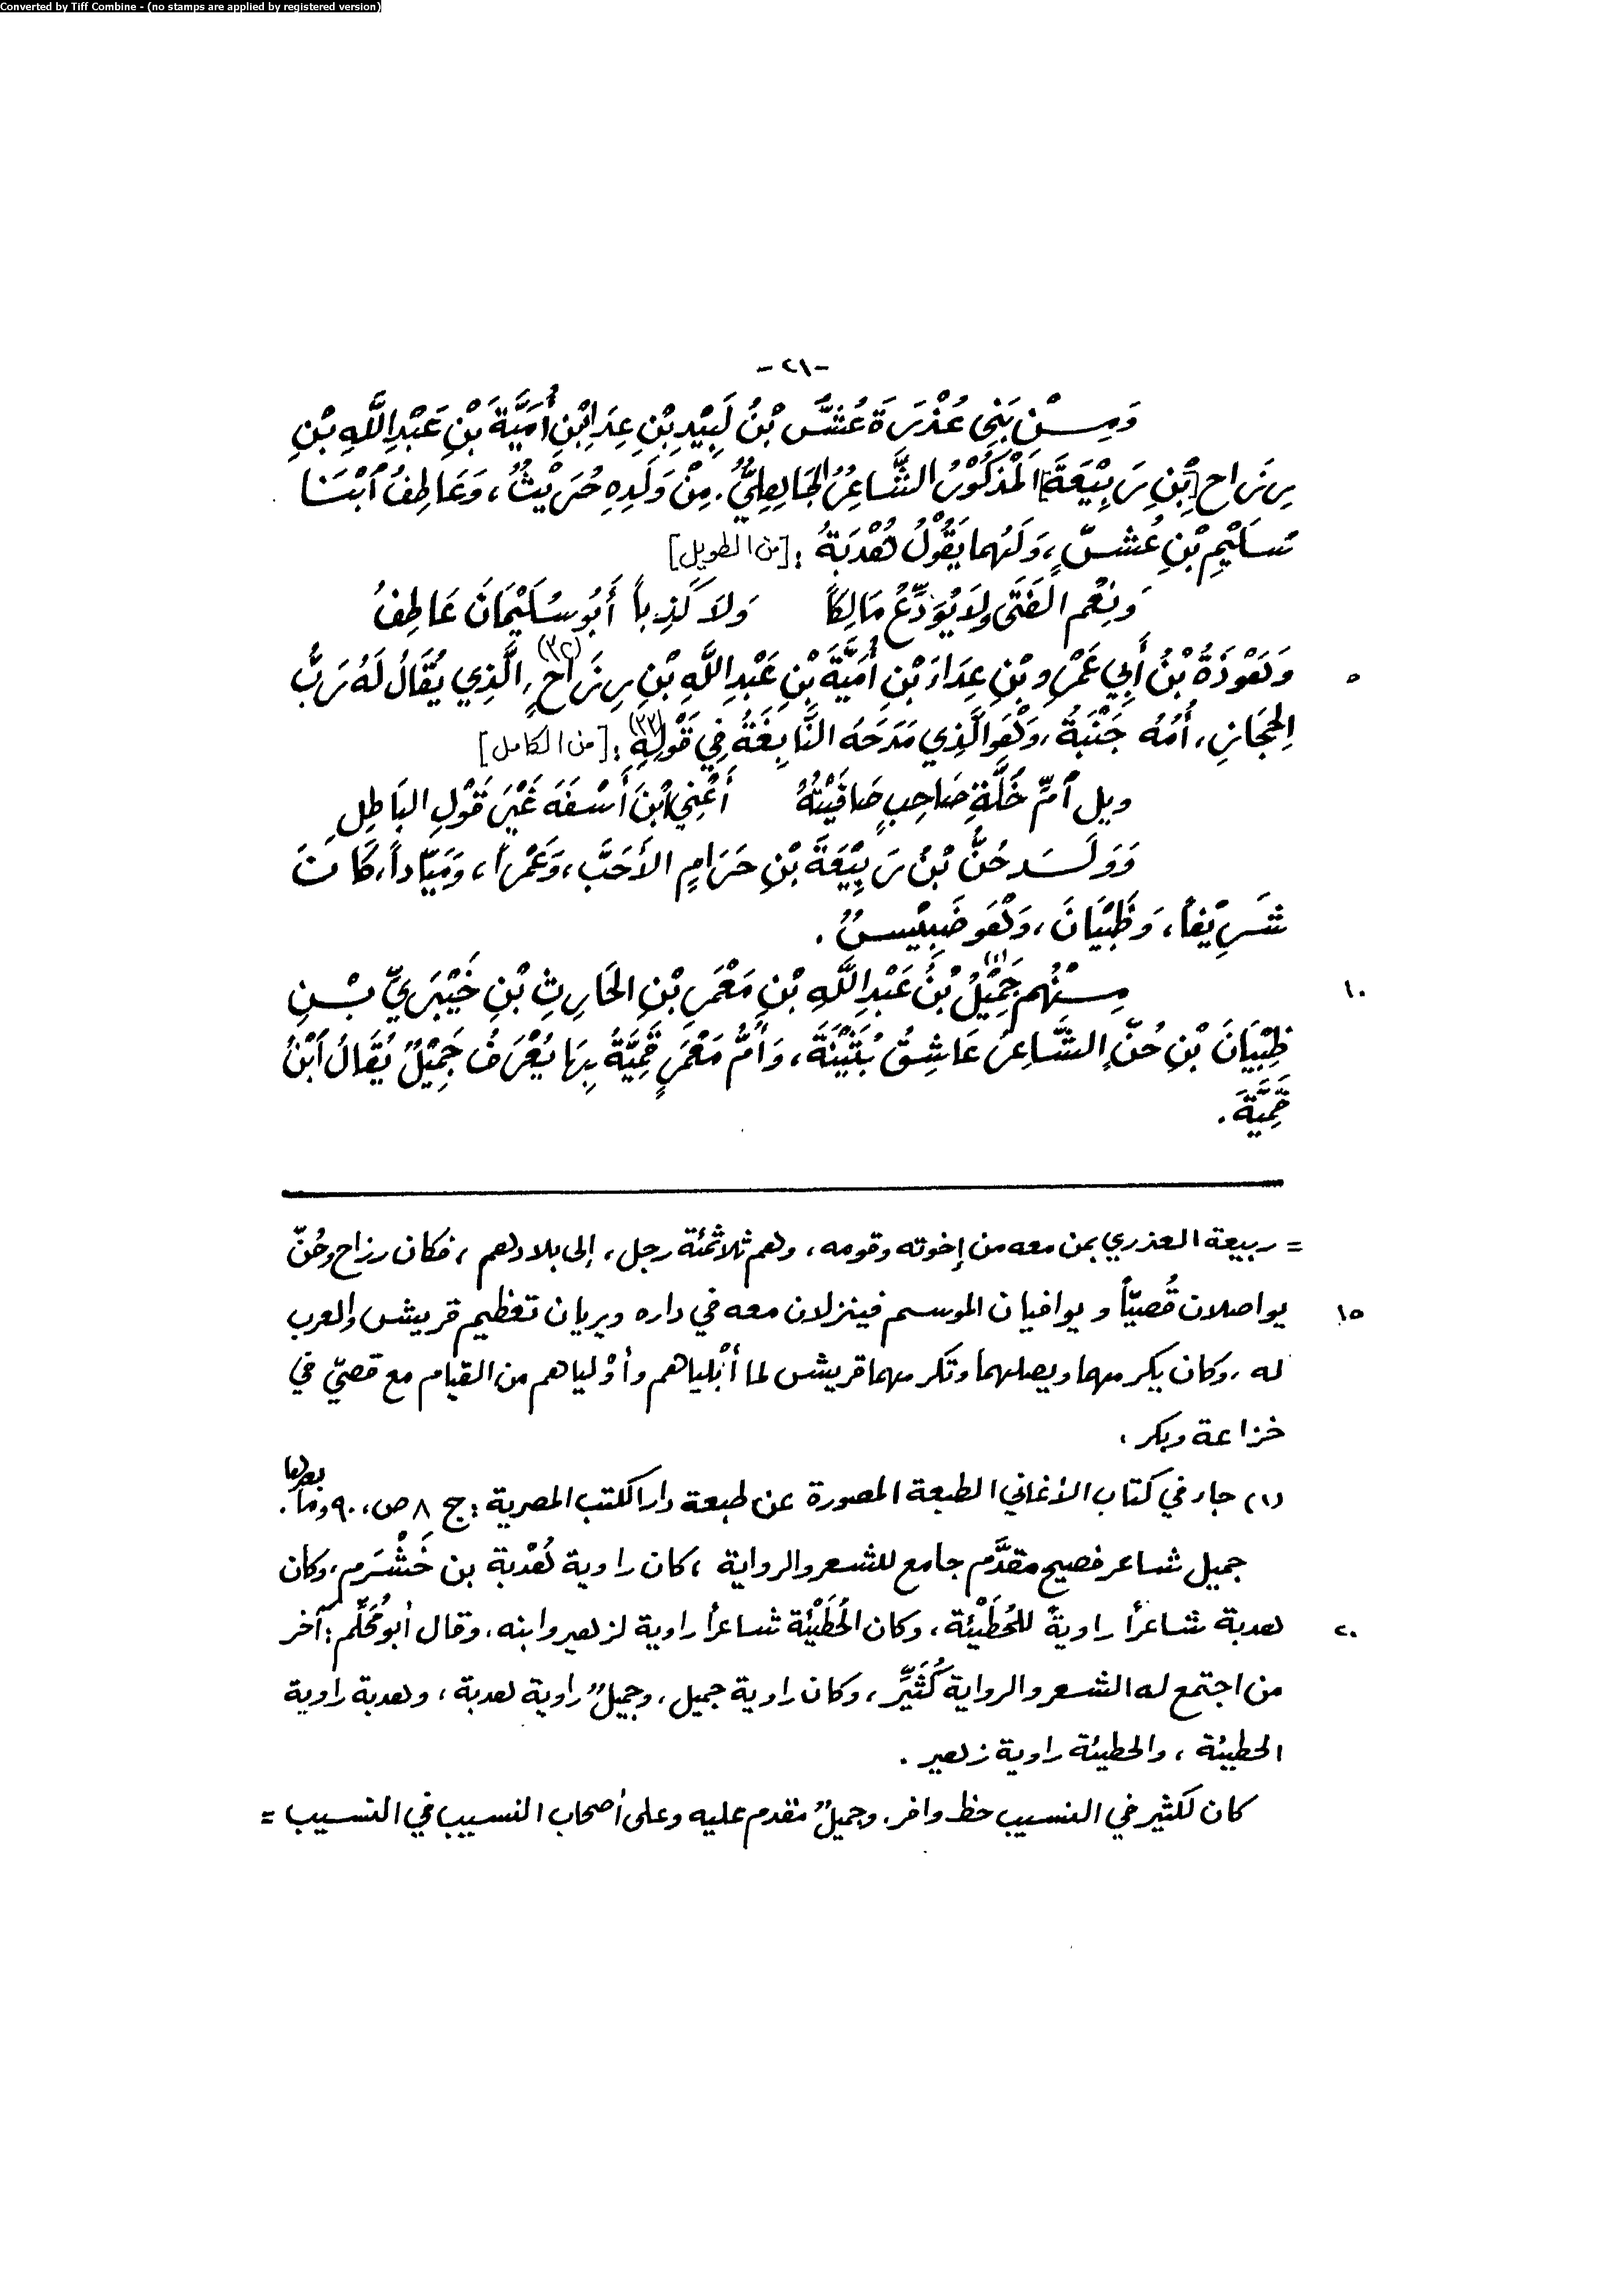 Converted by Tiff Combine - (no stamps are applied by registered version)
-٢١-
وَمِنْ بَنِي عُذْرَةَ عُشُّ بْنُ لَبِيْدِ بْنِ عِدَا بْنِ أُمَيَّةَ بْنِ عَبْدِ اللَّهِ بْنِ
رِزَاح [بْنِ رَبِيْعَةَ] المَذْكُوْرُ الشَّاعِرُ الجَاهِلِيُّ. مِنْ وَلَدِهِ حُرَيْثُ، وَعَاطِفُ ٱبْنَا
سُلَيْمِ بْنِ عُشٍّ، وَلَهُما يَقُوْلُ هُدْبَةُ : [من الطويل]
وَنِعْمَ الفَتَى ولَا يُوَدِّعُ مَالِكاً     وَلاَ كَذِباً أَبُو سُلَيْمَانَ عَاطِفُ
٥ وَهَوْذَةُ بْنُ أَبِي عَمْرِو بْنِ عِدَاءَ بْنِ أُمَيَّةَ بْنِ عَبْدِ اللَّهِ بْنِ رِزَاحٍ(٣٢)، الَّذِي يُقَالُ لَهُ رَبُّ
الحِجَازِ، أُمُّهُ جَنْبَةُ، وَهُوَ الَّذِي مَدَحَهُ النَّابِغَةُ فِي قَوْلِهِ(٣٣) : [من الكامل]
ويل ٱمِّ خَلَّةِ صَاحِبٍ صَافَيْتُهُ     أَعْنِي ٱبْنَ أَسْفَهَ غَيْرَ قَوْلِ البَاطِلِ
وَوَلَـدَ حُنُّ بْنُ رَبِيْعَةَ بْنِ حَرَامٍ الأَحَبَّ، وَعَمْراً، وَمَيّاداً، كَانَ
شَرِيْفاً، وَظَبْيَانَ، وَهُوَ ضَبِيْسٌ.
١٠ مِنْهُم جَمِيْلُ(١) بْنُ عَبْدِ اللَّهِ بْنِ مَعْمَرِ بْنِ الحَارِثِ بْنِ خَيْبَرِيِّ بْنِ
ظَبْيَانَ بْنِ حُنٍّ الشَّاعِرُ عَاشِقُ بُثَيْنَةَ، وَأُمُّ مَعْمَرٍ قَمِيَّةُ بِهَا يُعْرَفُ جَمِيْلٌ يُقَالُ ٱبْنُ
قَمِيَّةَ.
= ربيعة العذري بمن معه من إخوته وقومه، وهم ثلاثمئة رجل، إلى بلادهم، فكان رزاح وحُنّ
١٥ يواصلان قُصيّاً و يوافيان الموسم فينزلان معه في داره ويريان تعظيم قريش والعرب
له، وكان يكرمهما ويصلهما وتكرمهما قريش لما أبْلياهم وأوْلياهم من القيام مع قصيّ في
خزاعة وبكر،
(١) جاء في كتاب الأغاني الطبعة المصورة عن طبعة دار الكتب المصرية : ج ٨ ص، ٩٠ وما بعدها.
جميل شاعر فصيح مقدَّم جامع للشعر والرواية، كان راوية هُدْبة بن خَشْرَم، وكان
٢٠ هدبة شاعراً راويةً للحُطَيْئة، وكان الحُطَيْئة شاعراً راوية لزهير وابنه، وقال أبو مُحَلَّم : آخر
من اجتمع له الشعر والرواية كُثَيِّر، وكان راوية جميل، وجميلٌ راوية هدبة، وهدبة راوية
الحطيئة، والحطيئة راوية زهير.
كان لكثير في النسيب حظ وافر، وجميلٌ مقدم عليه وعلى أصحاب النسيب في النسيب =